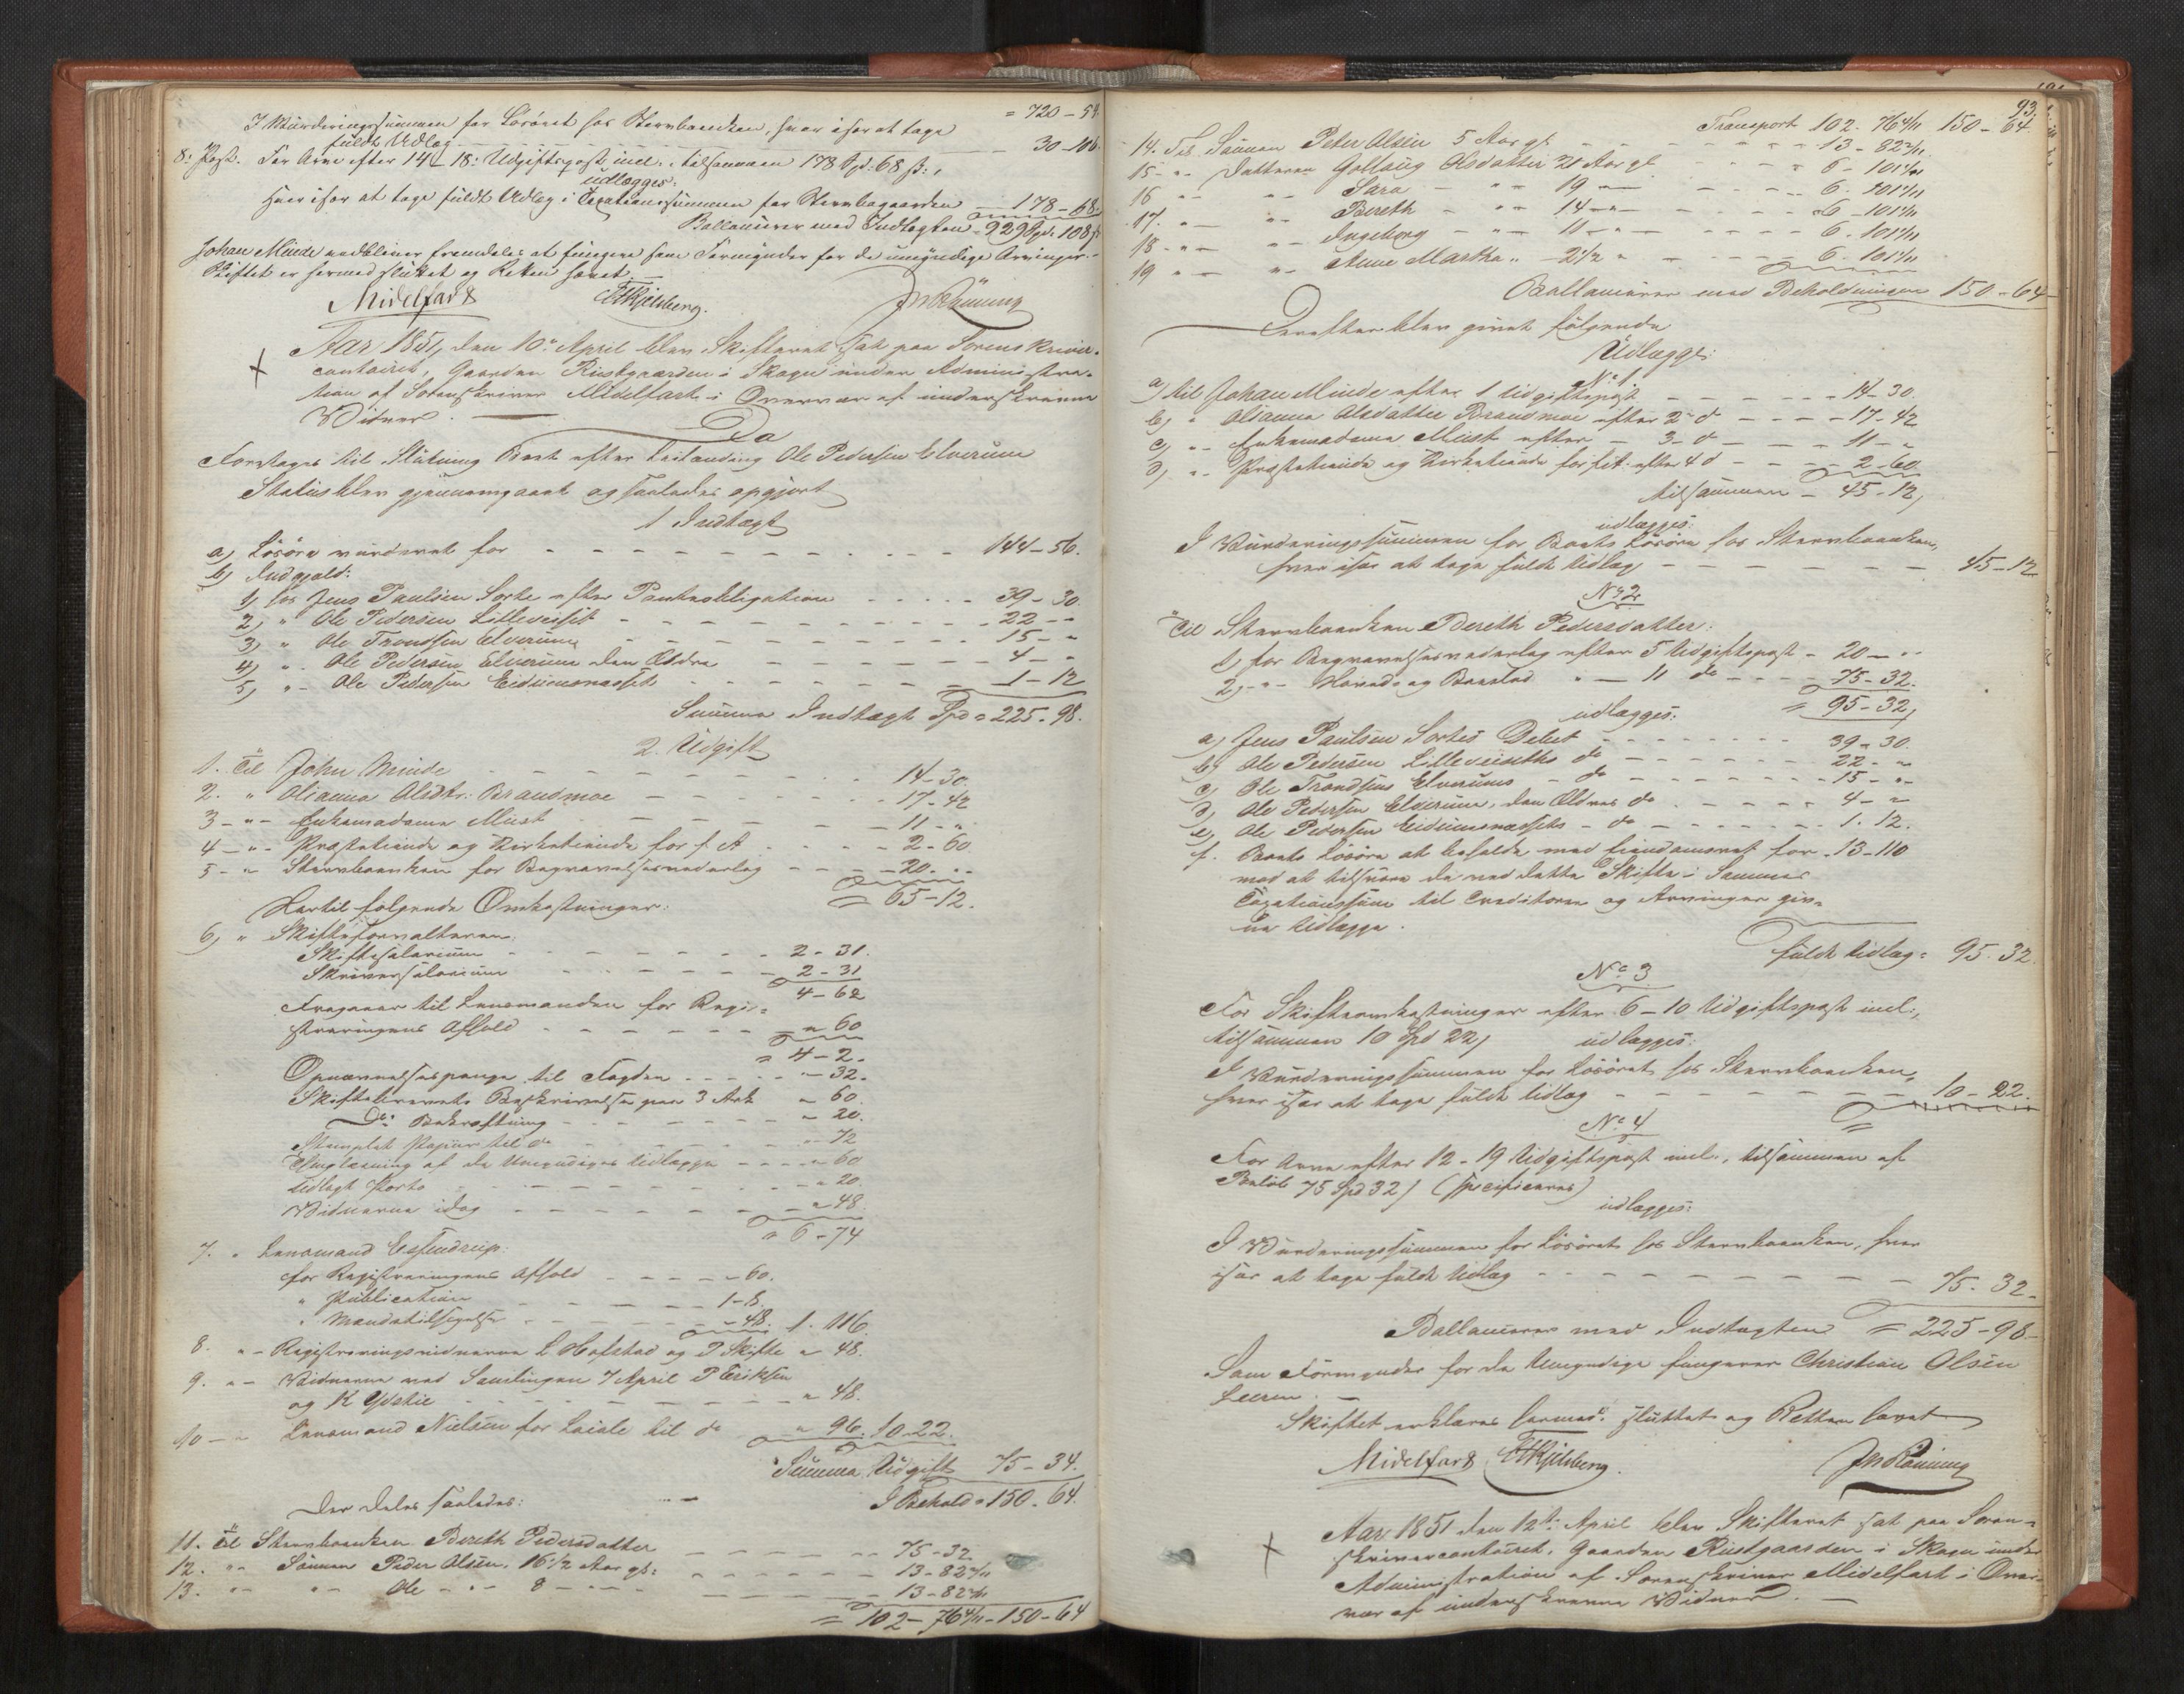 = 720-54
I Vurderingssummen for Løsøret hos Stervboenken, hvor isør at tage
fuldt Udlæg - - - 30-106.
8: Post. For Arve efter 14 - 18: Udgiftspost incl: tilsammen 178 Spd: 68 ß:,
udlægges:
hver isør at tage fuldt Udlæg i Taxationssummen for Stervbogaarden - 178-68.
Ballancerer med Indtægten = 929 Spd: 108 ß
Johan Minde vedbliver fremdeles at fungere som Formynder for de umyndige Arvinger.-
Skiftet er hermed sluttet og Retten hævet. -
Midelfart
Aar 1851, den 10de April blev Skifteret sat paa Sorenskriver-
contoiret, Gaarden Rustgaarden i Skogn under Administra-
tion af Sorenskriver Midelfart i Overvær af underskrevne
Vidner. -
Da
Foretages til Slutning Boet efter Leilænding Ole Pedersen Elverum
Status blev gjennemgaaet og saaledes opgjort
1 Indtægt
a) Løsøre vurderet for - - - 144-56.
b) Indgjæld:
1) hos Jens Paulsen Sorte efter Panteobligation - - 39-30.
2) " Ole Pedersen Lillevesset - - - 22 - -
3) " Ole Trondsen Elverum - - - 15 - -
4) " Ole Pedersen Elverum den Ældre - - - 4 - -
5) " Ole Pedersen Eidumsnesset - - - 1-12
Summa Indtægt Spd = 225-98.
2. Udgift
1. Til John Minde - - - 14-30.
2. " Olianna Olsdtr: Brandmoe - - - 17-42
3 - " - Enkemadame Must - - - 11 - "
4 - " - Præstetiende og Kirketiende for f. A - - - 2-60
5 - " Stervboenken for Begravelsesvederlag - - - 20. "
= 65-12.
Hertil følgende Omkostninger:
6) " Skifteforvalteren,
Skiftesalarium - - - 2-31.
Skriversalarium - - - 2-31
4-62
Fragaaer til Lensmanden for Regi-
streringens Afhold - - - " 60
= 4-2.
Opnævnelsespenge til Fogden - - - " 32.
Skiftebrevets Beskrivelse paa 3 Ark " 60.
Do: Bekræftning - - - " 20.
Stemplet Papiir til do - - - " 72
Thinglæsning af de Umyndiges Udlægge - - - " 60
Udlagt Porto - - - " 20.
Vidnerne idag - - - " 48.
" 6-74
7. " Lensmand Essendrup:
for Registreringens Afhold - - - " 60.
" Publication - - - 1-8.
" Mandstilsigelse - - - " 48. 1-116.
8. " - Registreringsvidnerne L Hofstad og P Skifte " 48.
9. " - Vidnerne ved Samlingen 7 April P Eriksen
og K Ydstie - - - " 48.
10 - " Lensmand Nielsen for Locale til do " 96. 10-22.
Summa Udgift 75-34.
I Behold = 150-64.
Der deles saaledes:
11. Til Stervboenken Bereth Pedersdatter - - - 75-32
12. " - Sønnen Peder Olsen, 16 1/2 Aar gl: - - - 13-82 2/11
13. " - " - Ole - " - 8 - " - - - 13-82 2/11
= 102-76 4/11 - 150-64
93.
Transport 102-76 4/11 150-64.
14. Til Sønnen Peter Olsen 5 Aar gl. - - - 13-82 2/11
15 - " - Datteren Gollaug Olsdatter 21 Aar gl - - - 6-101 1/11
16 " - " Sara - " 19 " - - - 6-101 1/11
17. " - " Bereth - " 14 " - - - 6-101 1/11
18 - " - " Ingeborg - " 11 - " - - - 6-101 1/11
19 " - " Anne Martha " - 2 1/2 " - - - 6-101 1/11
Ballancerer med Beholdningen 150-64
Derefter blev givet følgende
Udlægge:
No 1
a) til Johan Minde efter 1 Udgiftspost - - - 14-30.
b) " Olianna Olsdatter Brandmoe efter 2 - d - - - 17-42
c) " - Enkemadame Must efter - 3 - d - - - 11 - "
d) " - Præstetiende og Kirketiende for f. A: efter 4 d - - - 2-60
tilsammen - 45-12,
udlægges:
I Vurderingssummen for Boets Løsøre hos Stervboenken,
hver isør at tage fuldt Udlæg - - - 45-12
No 2
Til Stervboenken Bereth Pedersdatter:
1) for Begravelsesvederlag efter 5 Udgiftspost - 20 - "
2) - " - Hoveds og Boeslod " - 11 do - - - 75-32.
= 95-32,
udlægges:
a) Jens Paulsen Sortes Debet - - - 39-30.
b) Ole Pedersen Lillevesseths do - - - 22 - "
c) Ole Trondsens Elverums - do - - - 15 - "
d) Ole Pedersen Elverum, den Ældres do - - - 4 - "
e) Ole Pedersen Eidumsnessets - do - - - 1-12.
f. Boets Løsøre at beholde med Eiendomsret for - 13-110
mod at tilsvare de ved dette Skifte i Sammes
Taxationssum til Creditorer og Arvinger giv-
ne Udlægge.
fuldt Udlæg = 95-32.
No 3
For Skifteomkostninger efter 6-10 Udgiftspost incl:,
tilsammen 10 Spd 22/ udlægges:
I Vurderingssummen for Løsøret hos Stervboenken,
hver isør at tage fuldt Udlæg - - - 10-22.
No 4
For Arve efter 12-19 Udgiftspost incl., tilsammen af
Beløb 75 Spd 32/ (specificeres)
udlægges:
I Vurderingssummen for Løsøret hos Stervboenken, hver
isør at tage fuldt Udlæg - - - 75-32.
Ballancerer med Indtægten = 225-98-
Som Formynder for de Umyndige fungerer Christian Olsen
Leeren. -
Skiftet erklæres hermed sluttet og Retten hævet
Midelfart
Aar 1851 den 12te April blev Skifteret sat paa Soren-
skrivercontoiret, Gaarden Rustgaarden i Skogn under
Administration af Sorenskriver Midelfart i Over-
vær af underskrevne Vidner. -